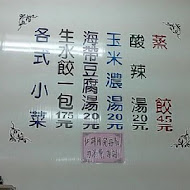 蒸餃45元
酸辣湯20元
玉米濃湯20元
海帶豆腐湯20元
生水餃一包175元
各式小菜